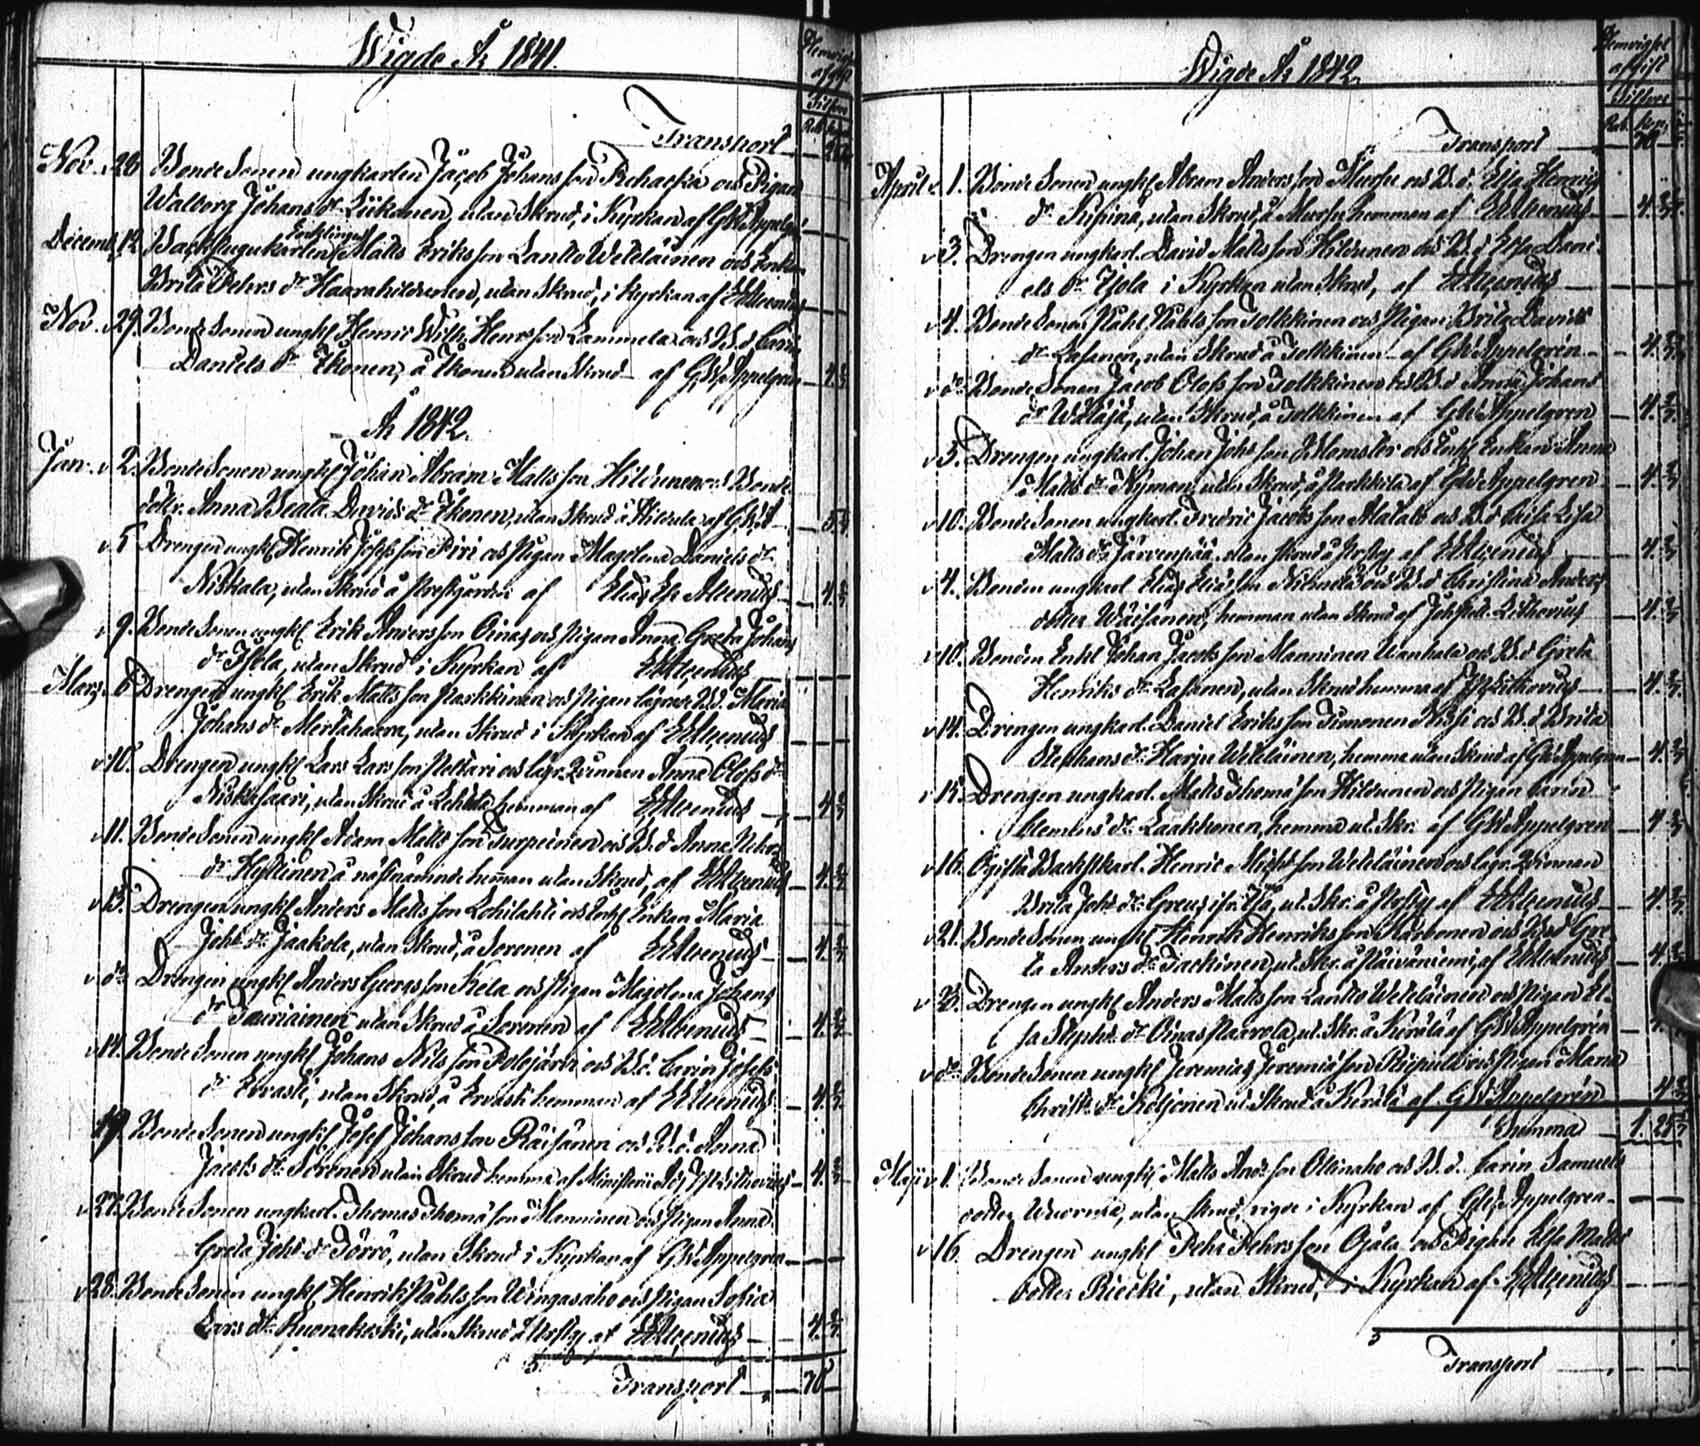 Wigde År 1841.
Transport
Nov. 28 Bonde Sonen ungkarlen Jacob Johans son och Pigan
Walborg Johans dr Liikanen, utan Skrud, i Kyrkan af GW Appelgr
Decemb. 12 Backstugukarlen Matts Eriks son Lantto Weteläinen och Enkan
Brita Pehrs dr Haarahiltunen, utan Skrud, i Kyrkan af EEAlcenius
Nov. 29. Bonde Sonen ungkl Henric Wilh. Henrs son Lammela och B.d. Carin
Daniels dr Ikonen, å Ikonen utan Skrud af GW Appelgren 4
År 1842.
Jan. v 2. Bonde Sonen ungkl Johan Abram Matts son Hiltunen och Bonde
dottr. Anna Beata Davids dr Ikonen, utan Skrud å Hiltula af GWA
v 5 Drengen ungkl Henrik Josefs son Piri och Pigan Magdlena Daniels dr
Niskala, utan Skrud å Prestgården af Elias Ef Alcenius 4
v 9. Bonde Sonen ungkl Erik Anders son Oinas och Pigan Anna Greta Johans
dr Isola, utan Skrud i Kyrkan af EEAlcenius
Mars. 6 Drengen ungkl Erik Matts son Parkkinen och Pigan lägrade B.d. Maria
Johans dr Mertahaara, utan Skrud i Kyrkan af EEAlcenius
v 10. Drengen ungkl Lars Lars son Peltari och lägr. Qvinnan Anna Olofs dr
Niskasaari, utan Skrud å Lehtola hemman af EEAlcenius 4
v 11. Bonde Sonen ungkl Adam Matts son Turpeinen och B.d Anna Pehrs
dr Heikkinen å näst nämnde hemman utan Skrud, af EEAlcenius 4
v 13. Drengen ungkl Anders Matts son Lohilahti och Enkl Enkan Maria
Johs dr Jaakola, utan Skrud, å Soronen af EEAlcenius 4
v do Drengen ungkl Anders Georgs son Kela och Pigan Magdlena Johans
dr Tauriainen utan Skrud å Soronen af EEAlcenius 4
v 14. Bonde Sonen ungkl Johans Nils son Polojärvi och B.d. Carin Josefs
dr Ervasti, utan Skrud, å Ervasti hemman af EEAlcenius 4
19. Bonde Sonen ungkl Josef Johans son Räisänen och B.d. Anna
Jacobs dr Soronen utan Skrud hemma af Ministerii Adj JF Lithovius 4
v 27. Bonde Sonen ungkarl. Thomas Thomæ son Manninen och Pigan Anna
Greta Johs dr Törrö, utan Skrud i Kyrkan af GW Appelgren
v 28. Bonde Sonen ungkl Henrik Påhls son Wengasaho och Pigan Sofia
Lars dr Ruonakoski, utan Skrud å Prstg af EEAlcenius 4
Transport 70
Wigde År 1842.
Hemvigsel
afgift
Silfver
Rub. kop.
Transport 70
April v. 1. Bonde Sonen ungkl Abram Anders son Mursu och B.d. Elsa Henriks
dr Kypinä, utan Skrud, å Mursu hemman af EEAlcenius 4
v 3. Drengen ungkarl. David Matts son Hiltunen och B.d Elsa Dani-
els dr Ojola i Kyrkan utan Skrud, af EEAlcenius
v 4. Bonde Sonen Påhl Påhls son Tolkkinen och Pigan Brita Davids
dr Lasanen, utan Skrud å Tolkkinen af GW Appelgren 4
v do Bonde Sonen Jacob Olofs son Tolkkinen och B.d Anna Johans
dr Wätäjä, utan Skrud, å Tolkkinen af GW Appelgren 4
v 5. Drengen ungkarl. Johan Johs son Blomster och Enkl Enkan Anna
Matts dr Nyman, utan Skrud, å Parkkila af GW Appelgren 4
v 10. Bonde Sonen ungkarl. Fredric Jacobs son Alatalo och B.d Caisa Lisa
Matts dr Järvenpää utan Skrud å Prstg af EEAlcenius 4
v 4. Bonden ungkarl Elias Eliæ son Niemelä och B.d Christina Anders
dotter Wäisänen, hemman utan Skrud af Joh Lithovius 4
v 10. Bonden Enkl Johan Jacobs son Manninen Wanhala och B.d Greta
Henriks dr Lasanen, utan Skrud hemma af JF Lithovius 4
v 14. Drengen ungkarl. Daniel Eriks son Timonen Nissi och B.d Brita
Stephans dr Harju Weteläinen, hemma utan Skrud af GW Appelgren 4
v 15. Drengen ungkarl. Matts Thomæ son Hiltunen och Pigan Carin
Clemens dr Laakkonen, hemma ut. Skr. af GW Appelgren 4
v 16. Ogifta Backstkarl. Henric Michs son Weteläinen och lägr. Qvinnan
Brita Johs dr Greus, ut. Skr. å Prstg af EEAlcenius 4
v 21. Bonde Sonen ungkl Henrik Henriks son Karhonen och B.d Gre-
ta Anders dr Tackinen, ut. Skr. å Päivänniemi, af EEAlcenius 4
v 23. Drengen ungkl Anders Matts son Lantto Weteläinen och Pigan El-
sa Stephs dr Oinas Paavola, ut. Skr. å Kurälä af GW Appelgren
v do Bonde Sonen ungkl Jeremias Jeremiæ son och Pigan Maria
Christs dr Kotjonen ut Skrud å Kurälä af GW Appelgren 4
Summa 1. 25
Maji v 1. Bonde Sonen ungkl Matts Ands son Ollinaho och B.d. Carin Samuels
dotter Wuorma, utan Skrud, vigde i Kyrkan af GW Appelgren
v 16. Drengen ungkl Pehr Pehrs son Ojala och Pigan Elsa Matts
dotter Riecki, utan Skrud, i Kyrkan af EEAlcenius
Transport